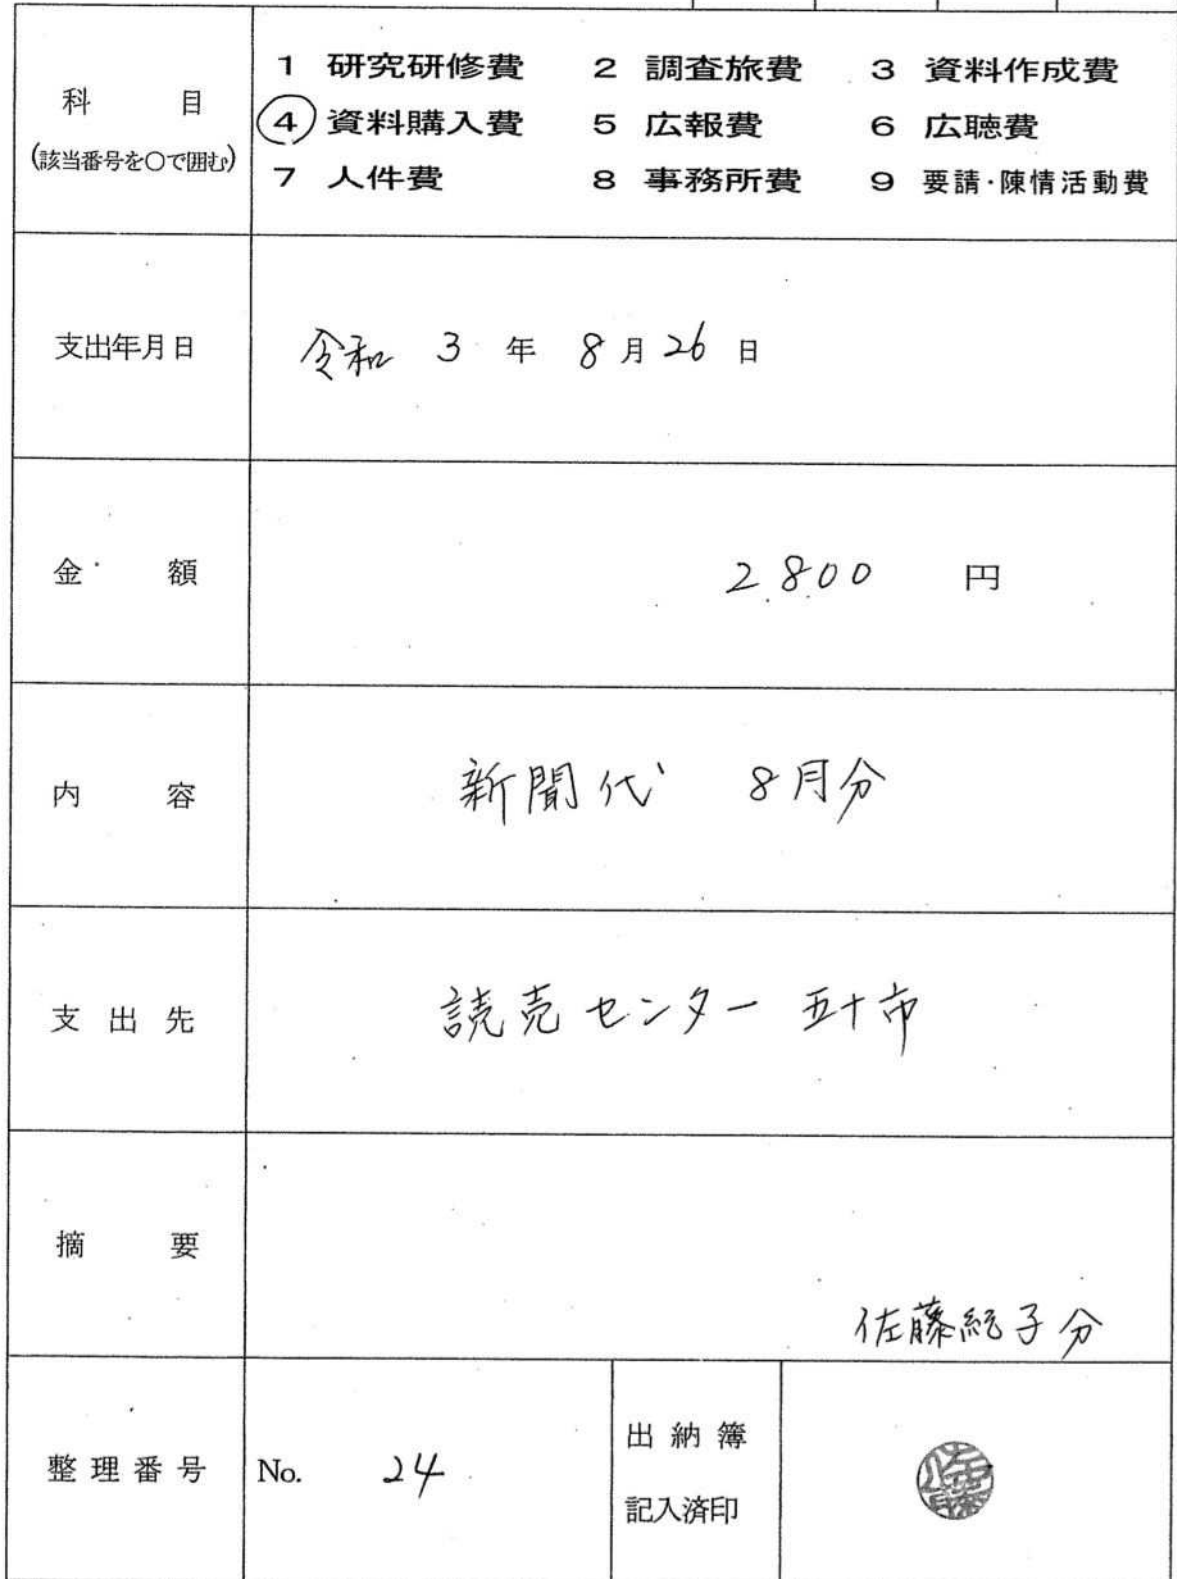 科目
(該当番号を〇で囲む)
1 研究研修費 2 調査旅費 3 資料作成費
④ 資料購入費 5 広報費 6 広聴費
7 人件費 8 事務所費 9 要請・陳情活動費
支出年月日 令和 3 年 8 月 26 日
金額 2,800 円
内容 新聞代 8月分
支出先 読売センター 五十市
摘要
佐藤紀子分
整理番号 No. 24
出納簿
記入済印
佐藤